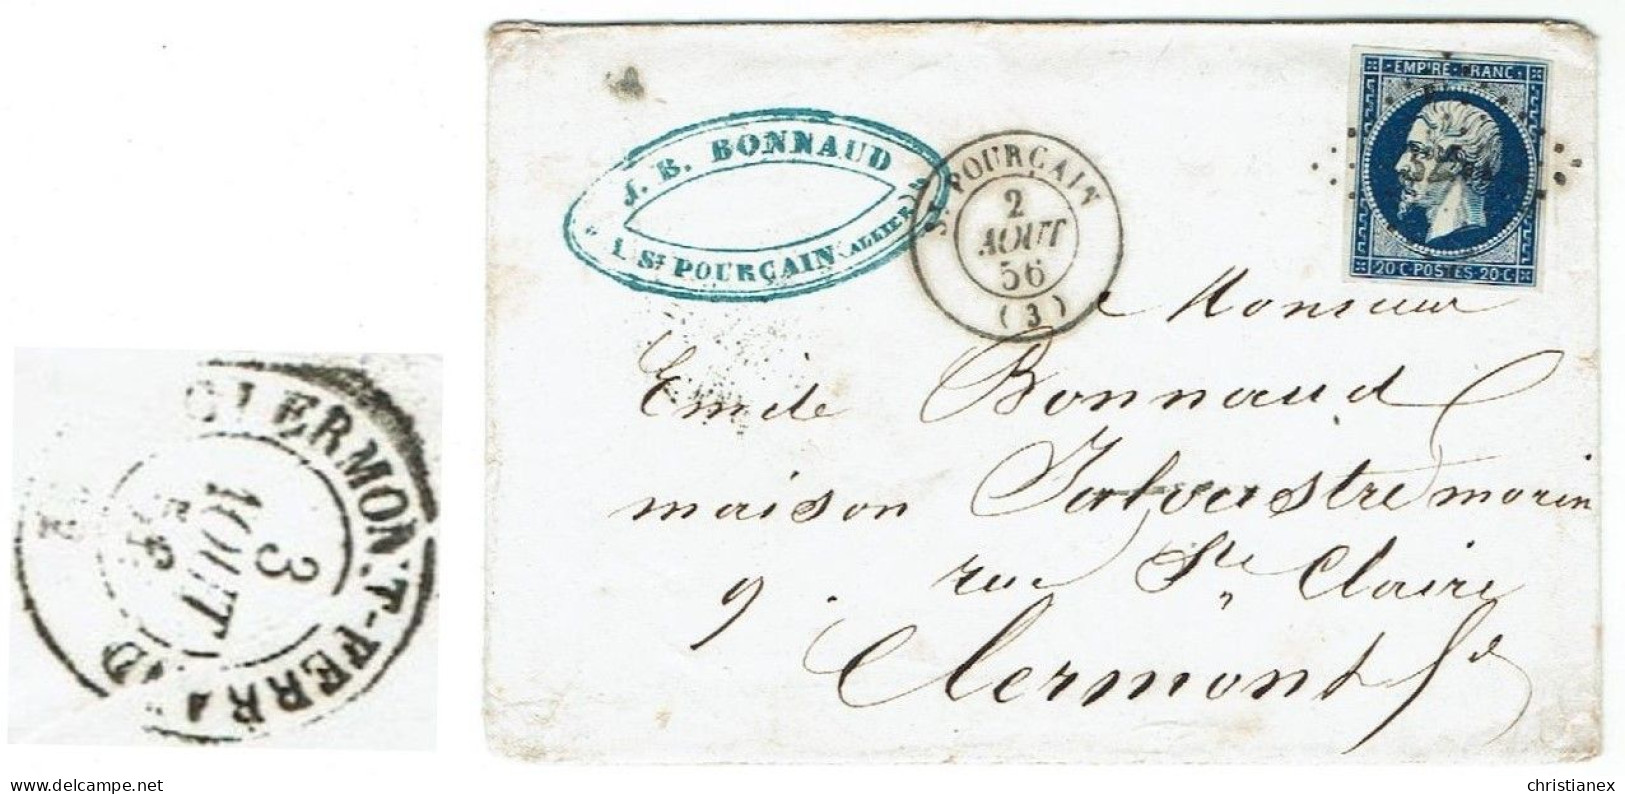 J. B. BONNAUD
St POURÇAIN (ALLIER)
St POURÇAIN
2
AOUT
56
(3)
EMPIRE FRANC
20 C POSTES 20 C
Monsieur
Emile Bonnaud
maison morin
9. rue Ste Claire
Clermont fd
CLERMONT-FERRAND
3
AOUT
56
christianex